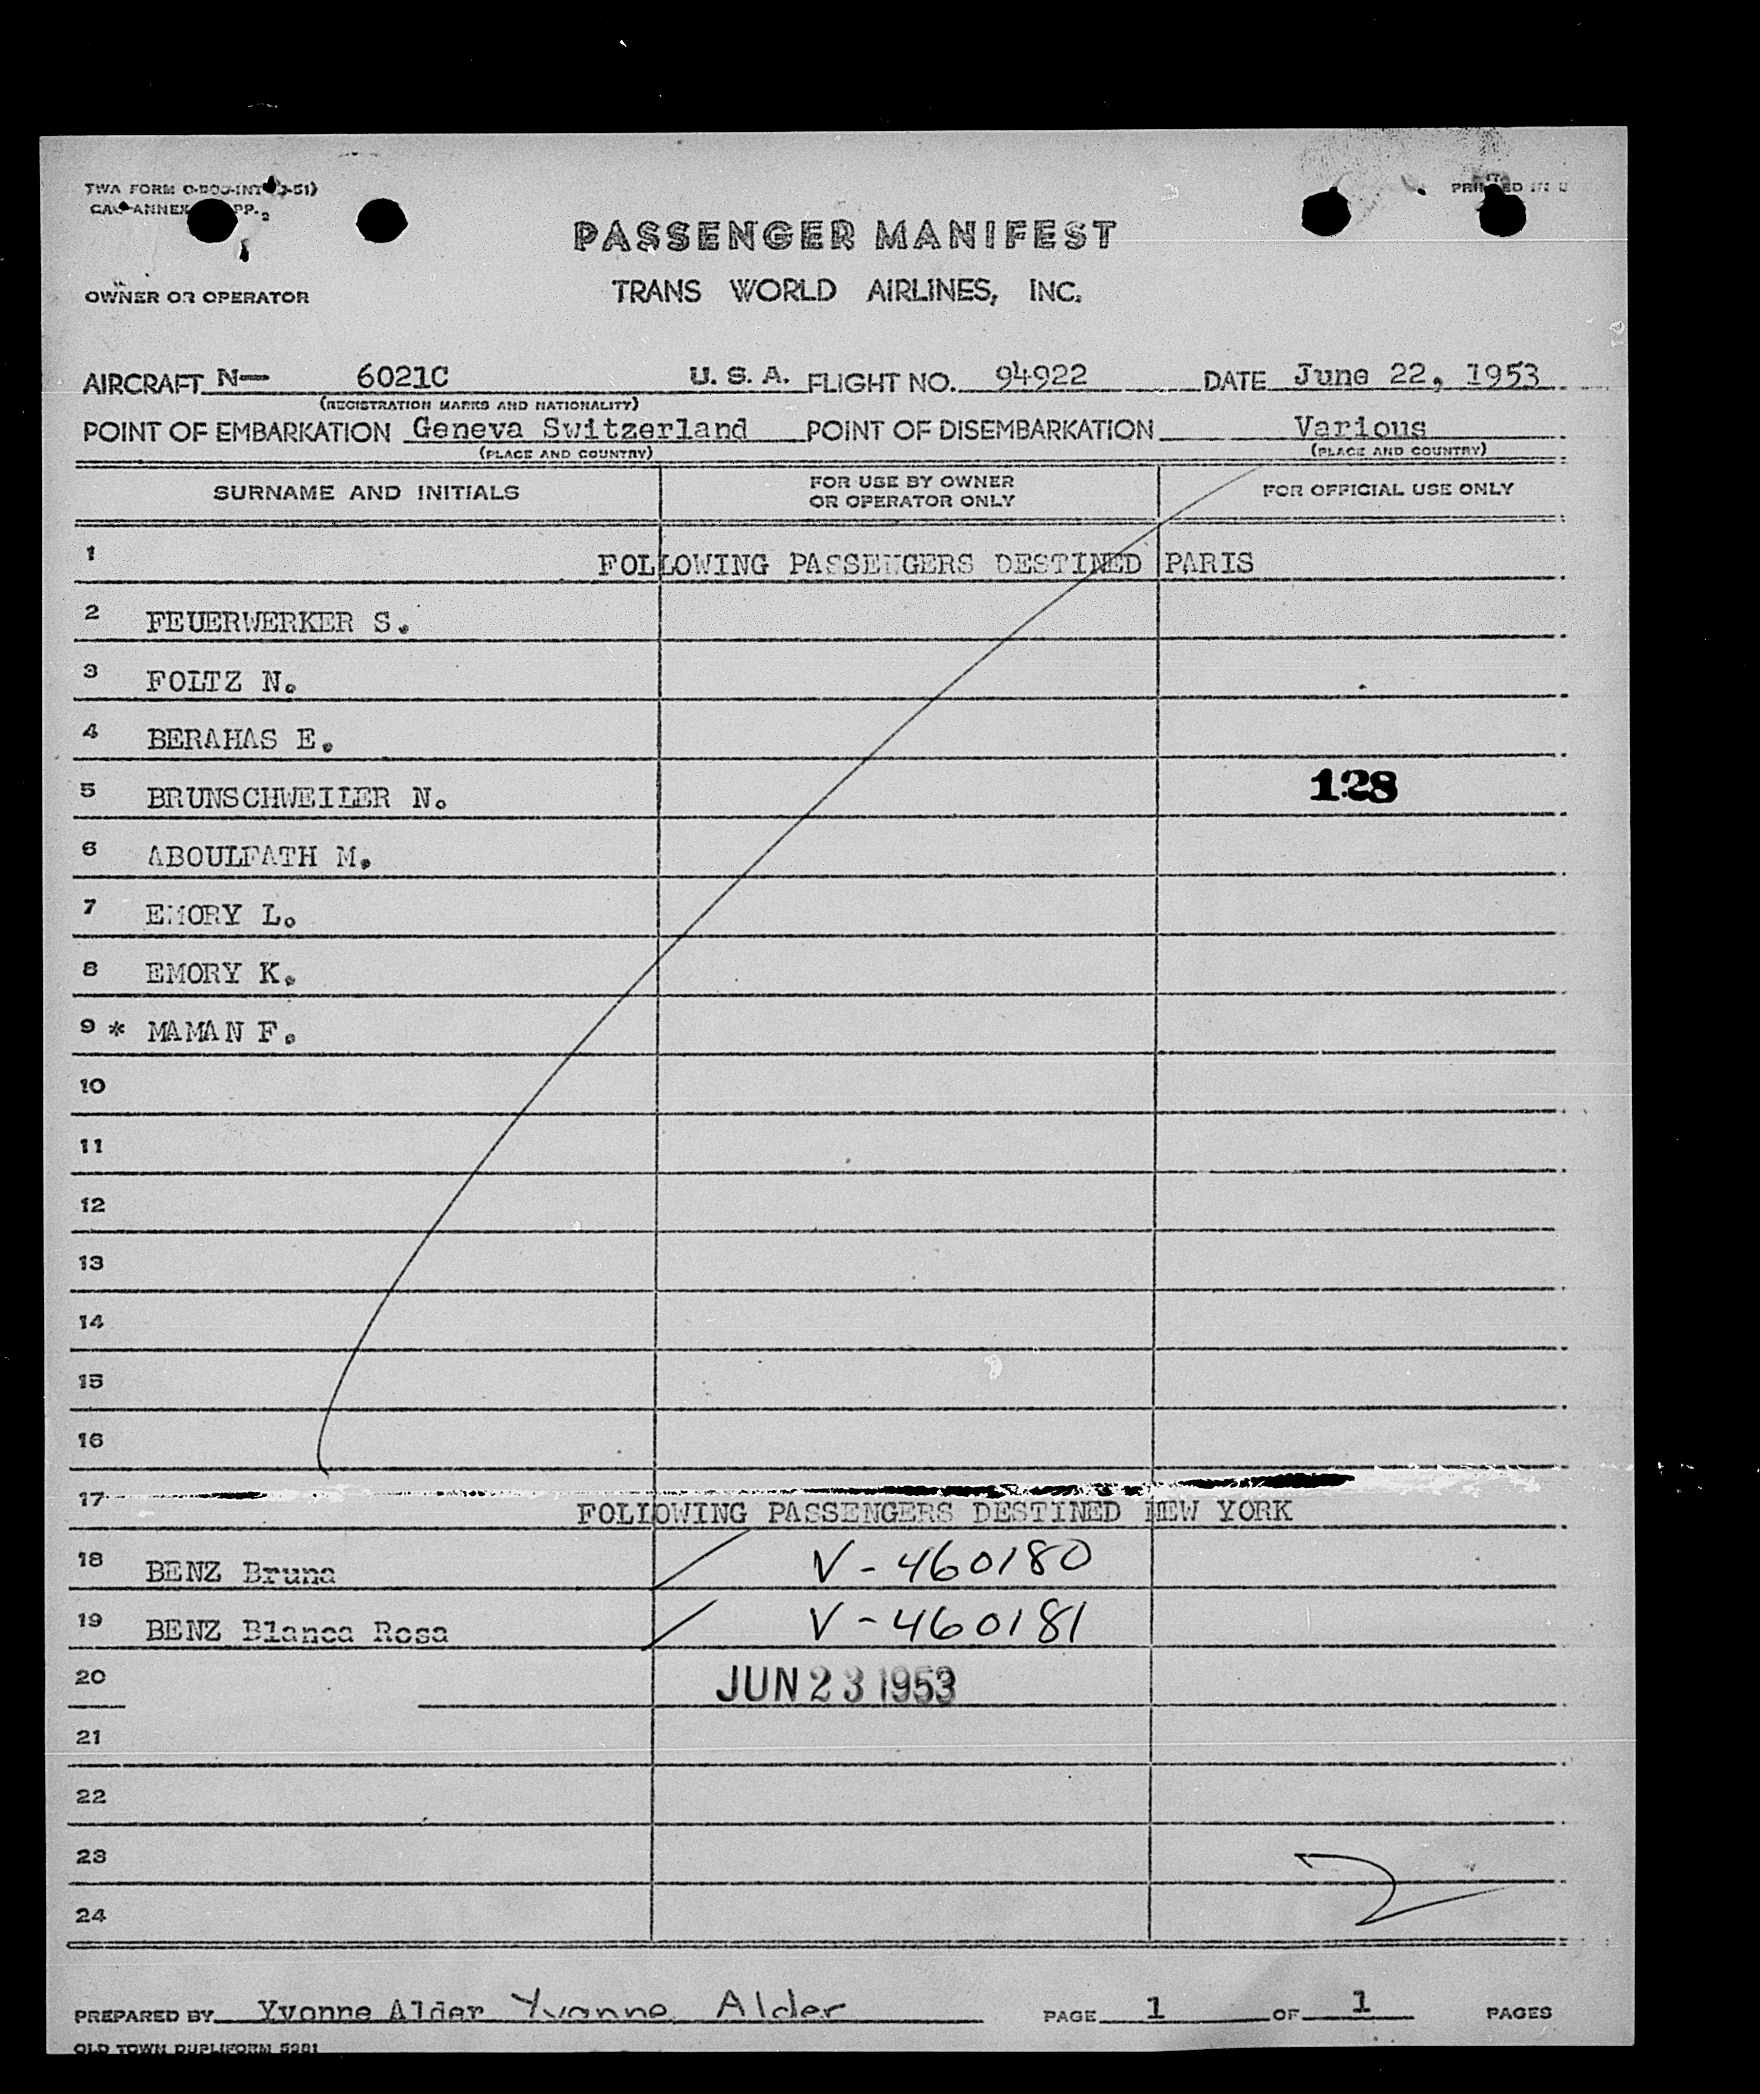 TWA FORM
PRINTED IN U
PASSENGER MANIFEST
TRANS WORLD AIRLINES, INC.
OWNER OR OPERATOR
AIRCRAFT N— 6021C U. S. A. FLIGHT NO. 94922 DATE June 22, 1953
(REGISTRATION MARKS AND NATIONALITY)
POINT OF EMBARKATION Geneva Switzerland POINT OF DISEMBARKATION Various
(PLACE AND COUNTRY) (PLACE AND COUNTRY)
SURNAME AND INITIALS FOR USE BY OWNER OR OPERATOR ONLY FOR OFFICIAL USE ONLY
1 FOLLOWING PASSENGERS DESTINED PARIS
2 FEUERWERKER S.
3 FOLTZ N.
4 BERAHAS E.
5 BRUNSCHWEILER N. 128
6 ABOULFATH M.
7 EMORY L.
8 EMORY K.
9 * MAMAN F.
10
11
12
13
14
15
16
17 FOLLOWING PASSENGERS DESTINED NEW YORK
18 BENZ Bruna V-460180
19 BENZ Blanca Rosa V-460181
20 JUN 23 1953
21
22
23
24
PREPARED BY Yvonne Alder Yvonne Alder PAGE 1 OF 1 PAGES
OLD TOWN DUPLIFORM 5281